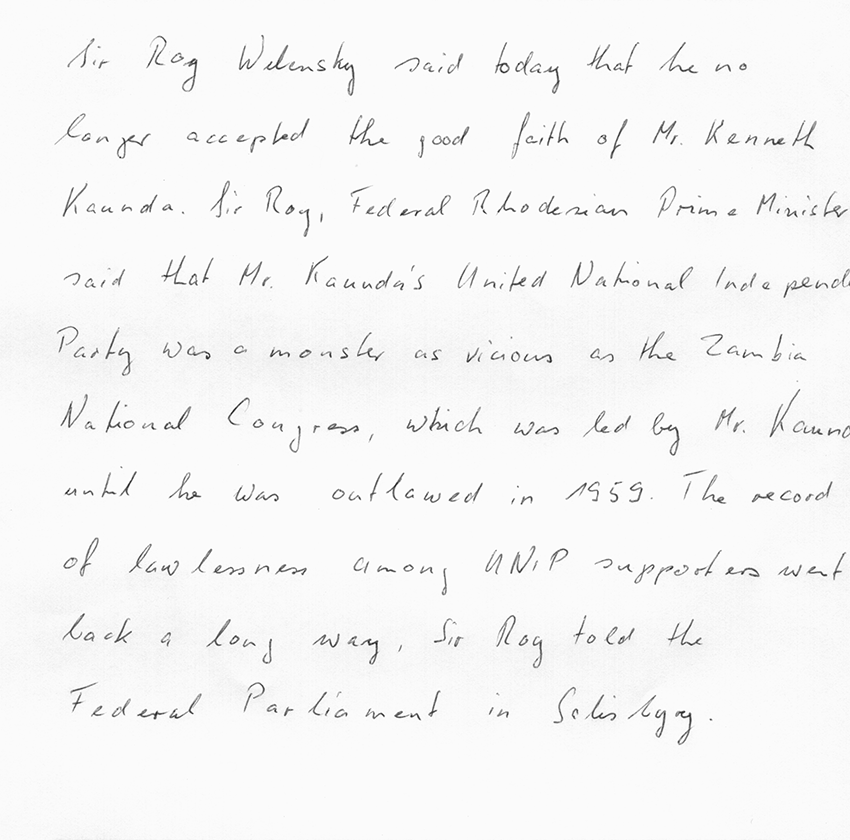 Sir Roy Welensky said today that he no
longer accepted the good faith of Mr. Kenneth
Kaunda. Sir Roy, Federal Rhodesian Prime Minister
said that Mr. Kaunda's United National Independe
Party was a monster as vicious as the Zambia
National Congress, which was led by Mr. Kaund
until he was outlawed in 1959. The record
of lawlessness among UNIP supporters went
back a long way, Sir Roy told the
Federal Parliament in